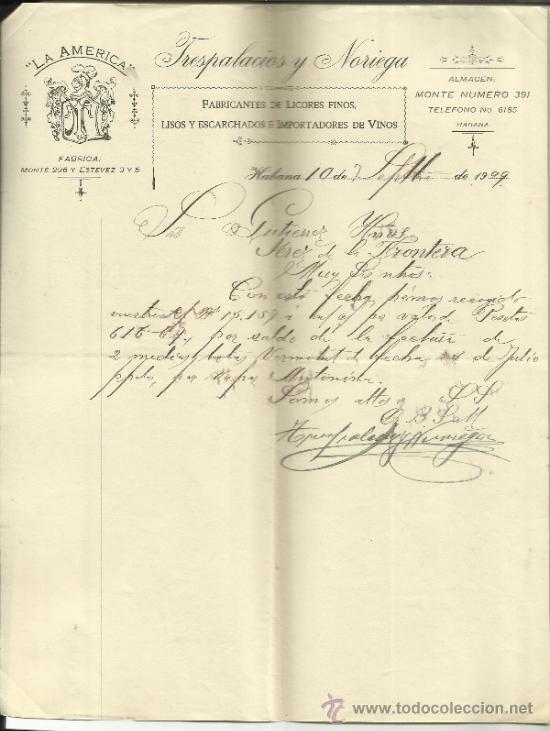 "LA AMERICA"
FABRICA:
MONTE 296 Y ESTEVEZ 3 Y 5
Trespalacios y Noriega
FABRICANTES DE LICORES FINOS,
LISOS Y ESCARCHADOS E IMPORTADORES DE VINOS
ALMACÉN:
MONTE NUMERO 391
TELEFONO No. 6185
HABANA.
Habana 10 de de 1909.
Gutierrez Hnos
Jerez de la Frontera
Muy Sr ntros:
Con esta fecha hemos recogido
15.159 por valor de Pesetas
por saldo de la factura de
2 medias botas Vermouth de fecha de Julio
ppdo, por Vapor
Somos attos S S
Q B S M
Trespalacios y Noriega
www.todocoleccion.net